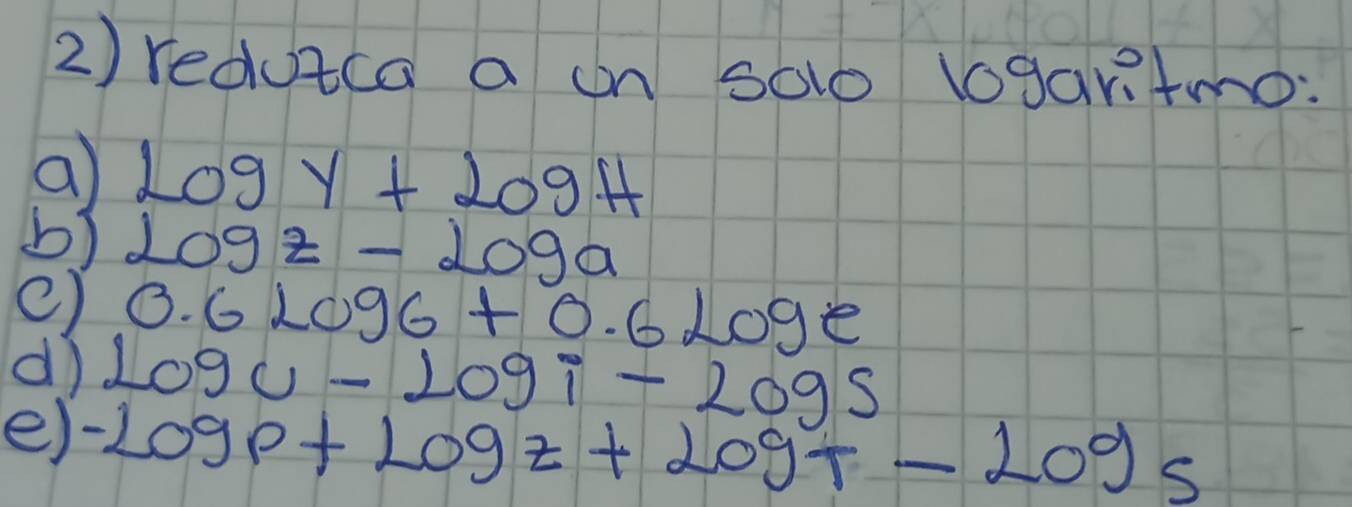 2) reduzca a un solo logaritmo:
a) Log Y + Log H
b) Log z - Log a
c) 0.6 Log 6 + 0.6 Log e
d) Log u - Log i - Log s
e) -Log p + Log z + Log T - Log s